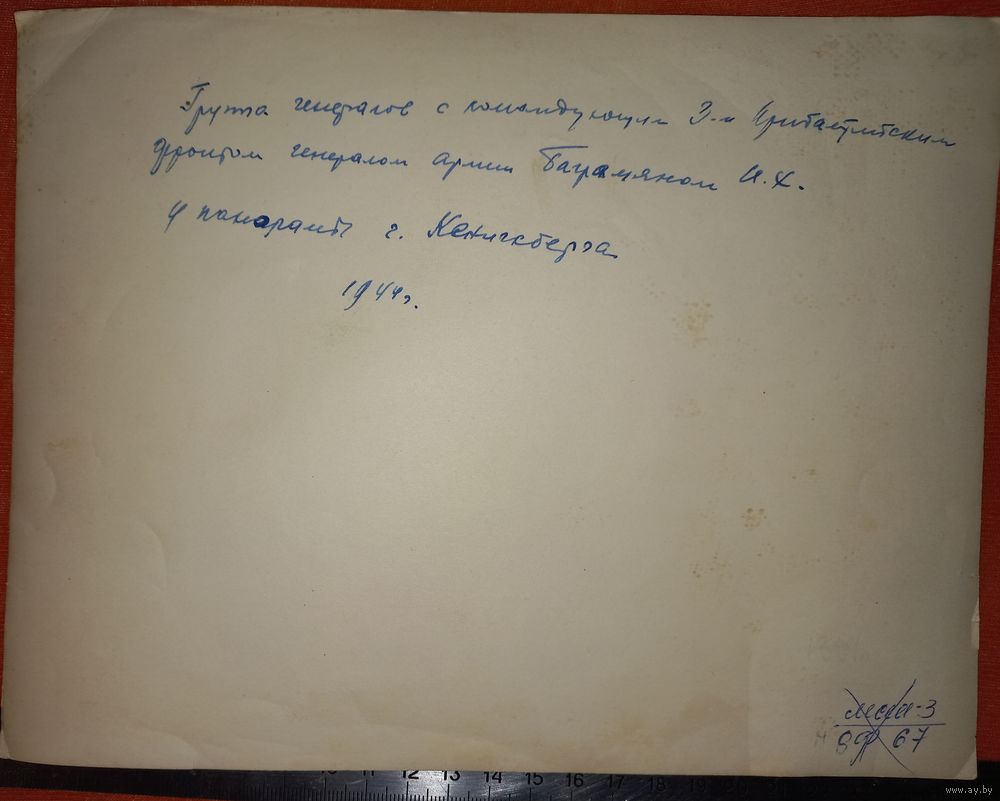 Группа генералов с командующим 3-м Прибалтийским
фронтом генералом армии Баграмяном И.Х.
у панорамы г. Кенигсберга
1944г.
67
10 11 12 13 14 15 16 17 18 19 20 21
www.ay.by